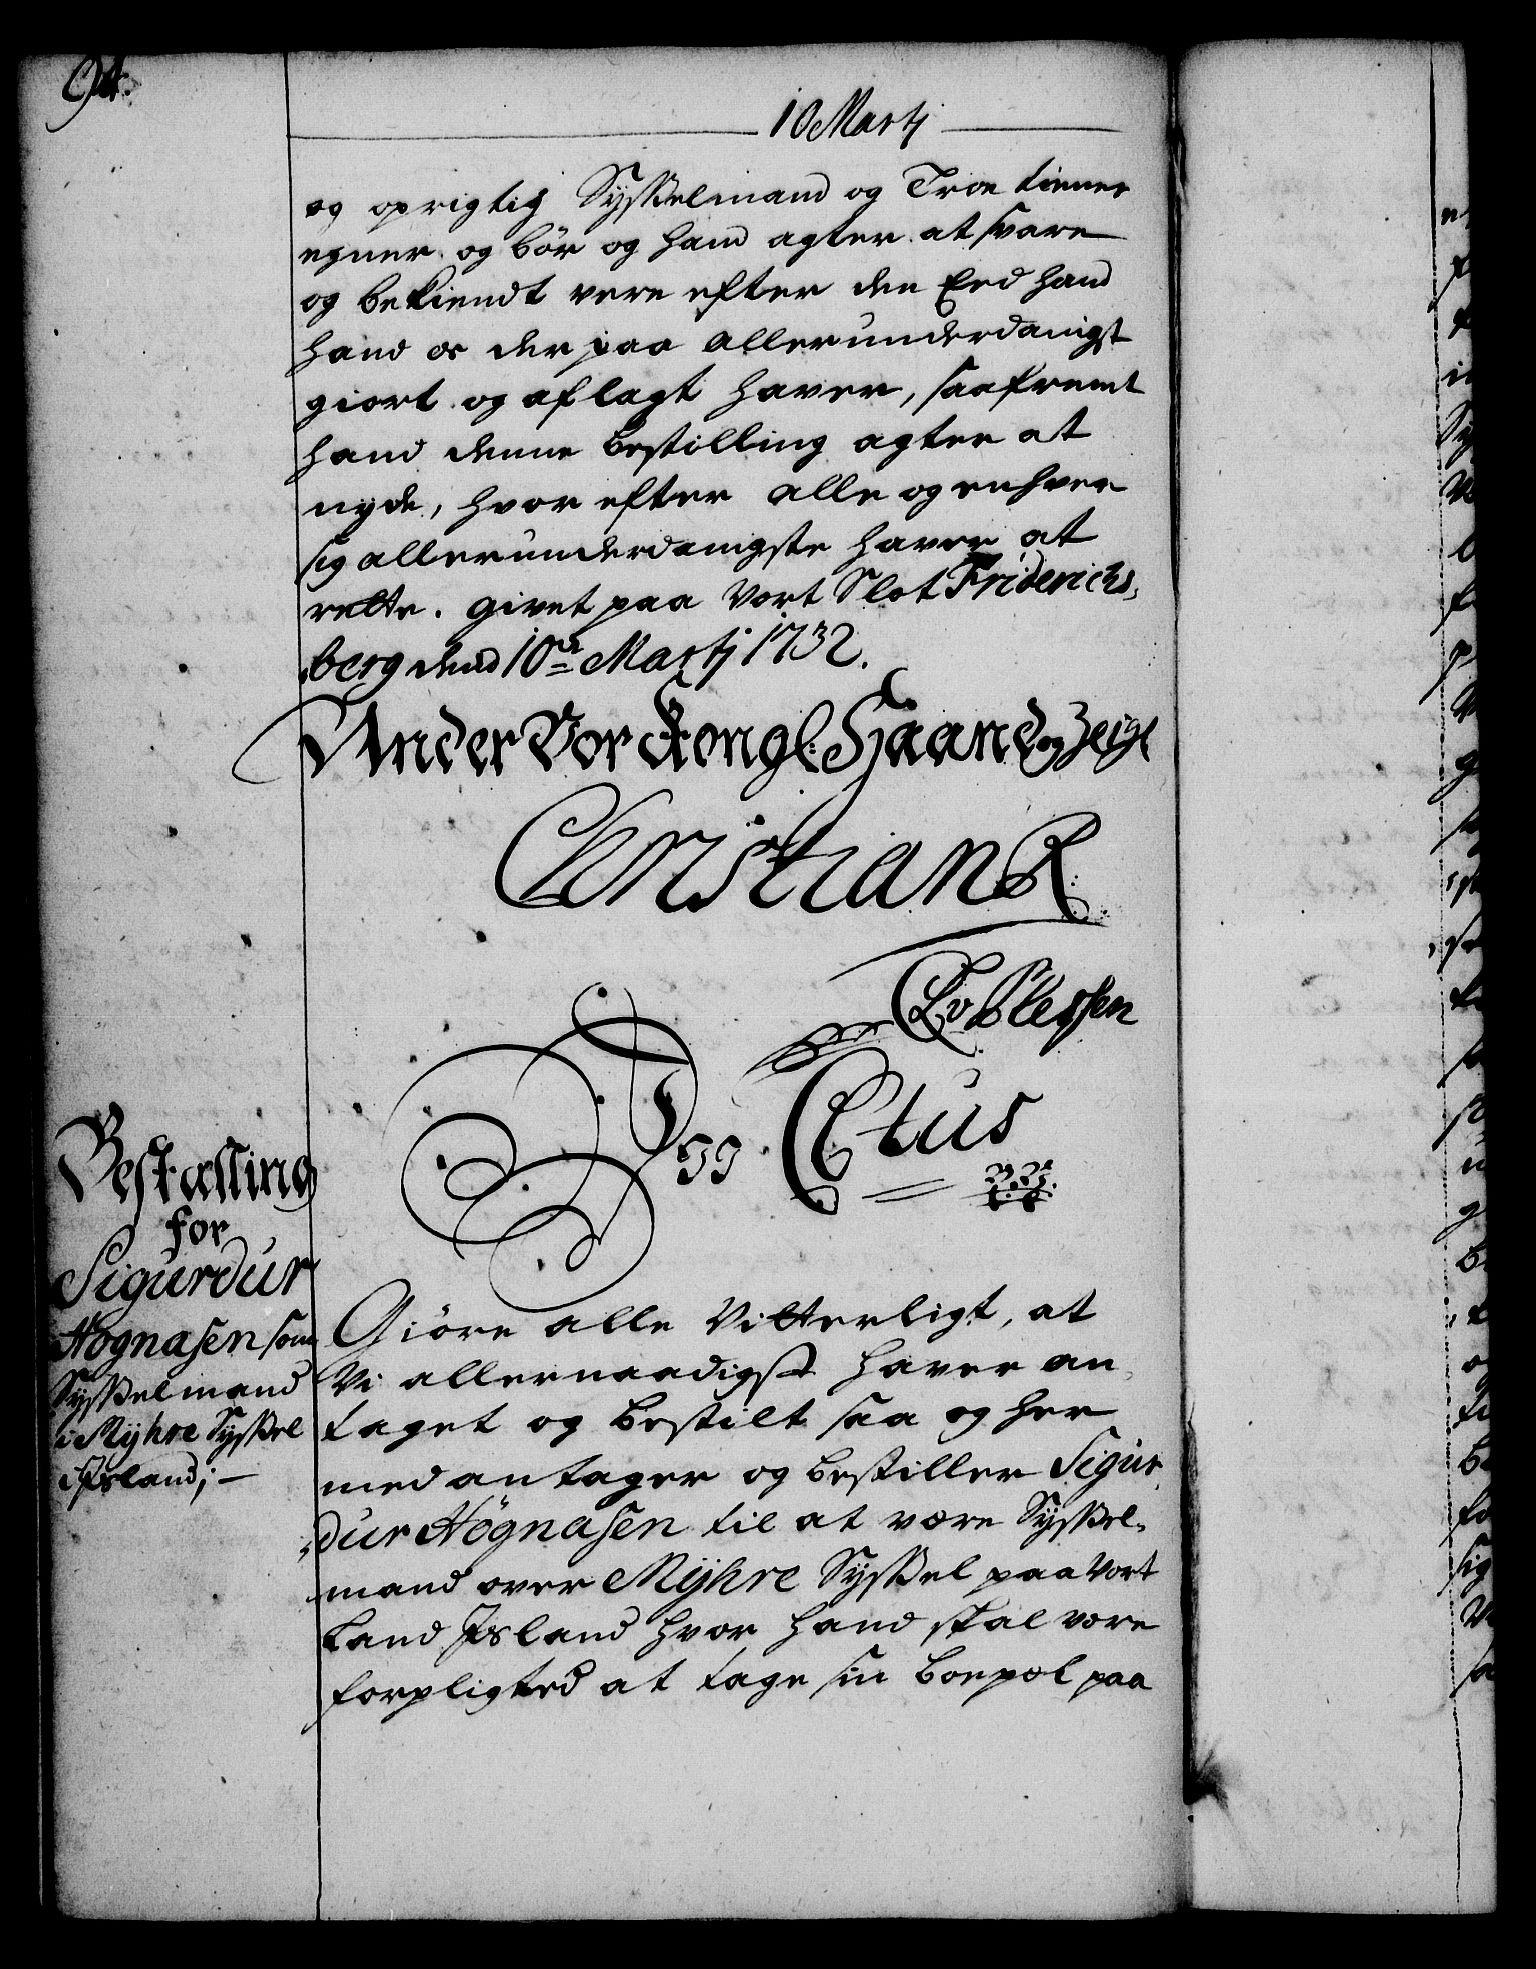 94.
10 Martj
og oprigtig Sysselmand og Troe tiener
egner og bör og hand agter at svare
og bekiendt vere efter den Eed hand
hand os der paa allerunderdanigst
giort og aflagt haver, saafremt
hand denne bestilling agter at
nyde, hvor efter alle og enhver
sig allerunderdanigste haver at
rette. givet paa Vort Slot Friderichs,
berg dend 10de Martj 1732.
Under Vor Kongl: Haand og Zeigl
Christian R:
C v Plessen
Vii CEtus
Bestalling
for
Sigurdur
Högnasen som
Sysselmand
i Myhre Syssel
i Jsland; —
Giöre alle Vitterligt, at
Vi allernaadigst haver an,
taget og bestilt saa og her
med antager og bestiller Sigur,
dur Högnasen til at være Syssel,
mand over Myhre Syssel paa Vort
Land Jsland hvor hand skal være
forpligted at tage sin boepæl paa